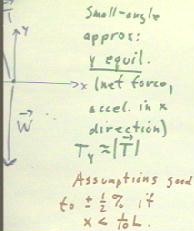 T
y
Small-angle
approx:
y equil.
x (net force,
accel. in x
direction)
W
T_y ≈ |T|
Assumptions good
to ± 1/2 %, if
x < 1/10 L.